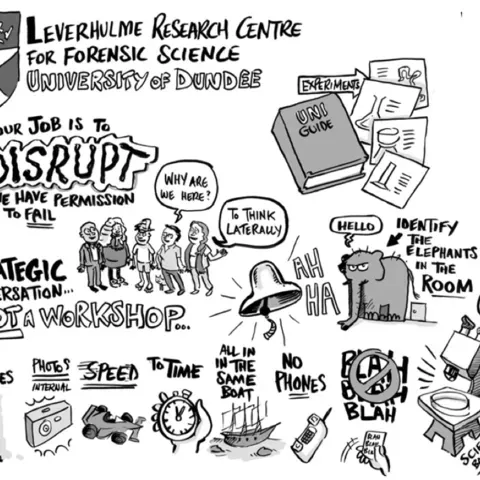 LEVERHULME RESEARCH CENTRE
FOR FORENSIC SCIENCE
UNIVERSITY OF DUNDEE
EXPERIMENTS
UNI
GUIDE
OUR JOB IS TO
DISRUPT
WE HAVE PERMISSION
TO FAIL
WHY ARE
WE HERE?
TO THINK
LATERALLY
HELLO
IDENTIFY
THE
ELEPHANTS
IN THE
ROOM
AH
HA
NOT A WORKSHOP...
PHOTOS
INTERNAL
SPEED
TO TIME
ALL IN
IN THE
SAME
BOAT
NO
PHONES
BLAH
BLAH
BLAH
BLAH
BLAH